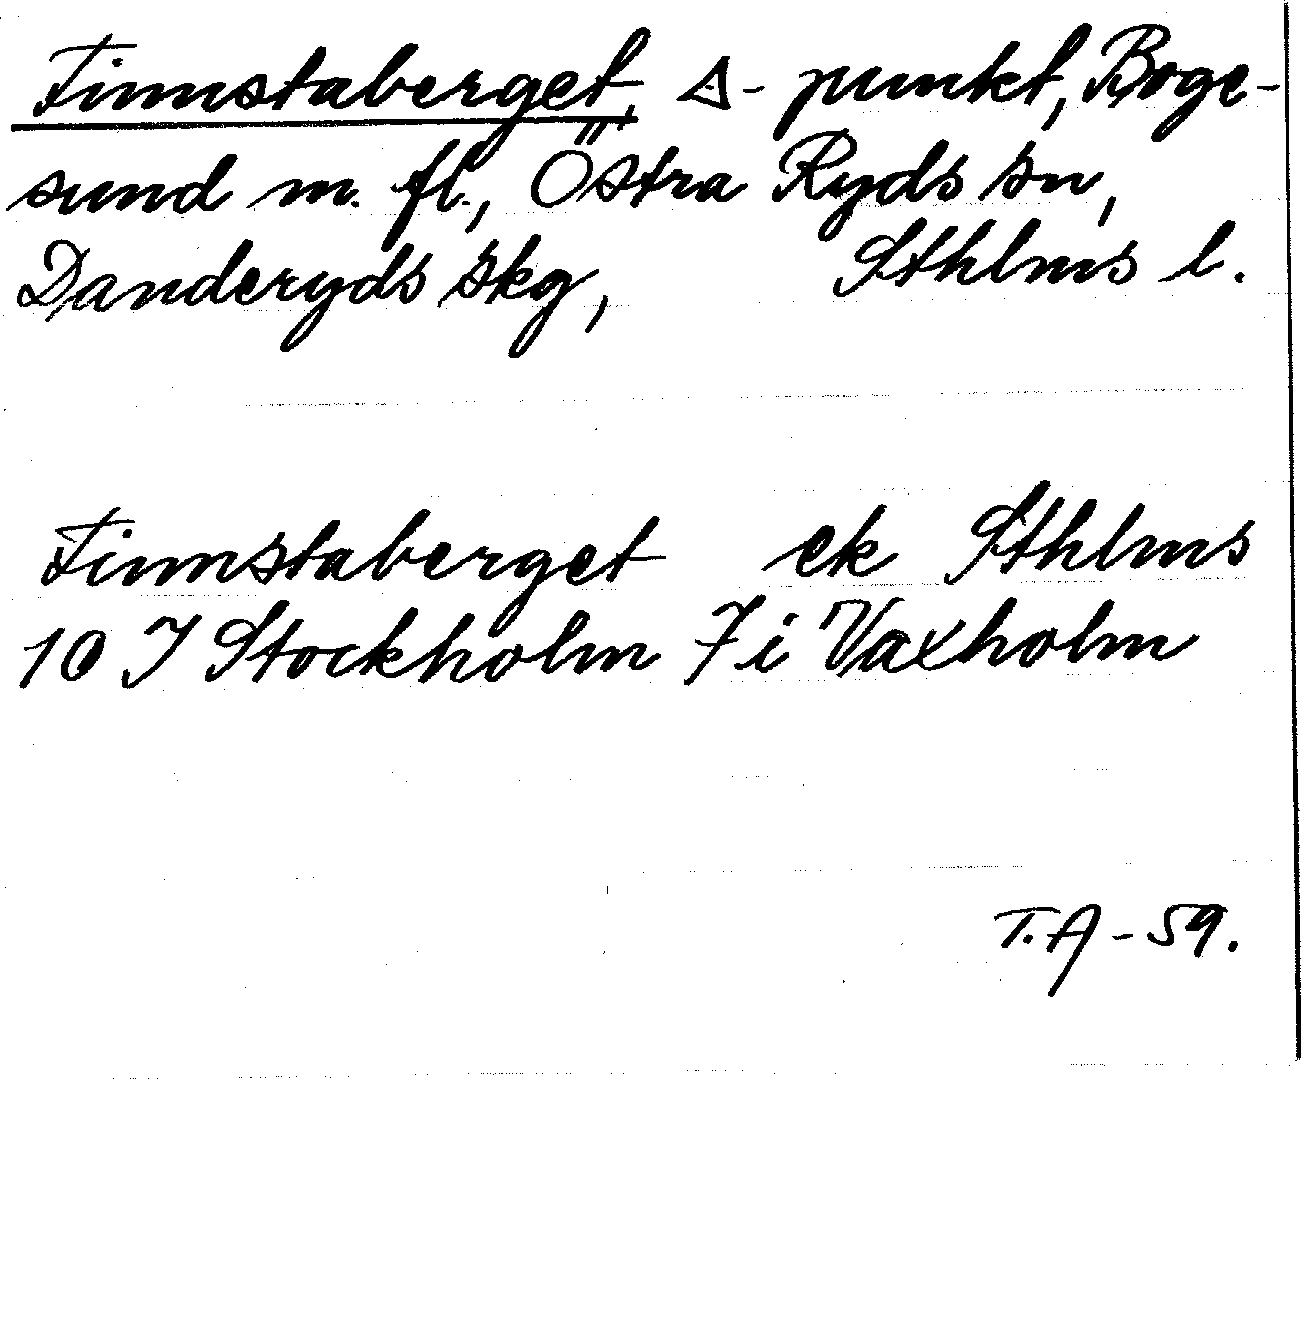 Finnstaberget, △-punkt, Boge-
sund m. fl., Östra Ryds sn,
Danderyds skg, Sthlms l.
Finnstaberget ek Sthlms
10 I Stockholm 7 i Vaxholm
T.A - 59.